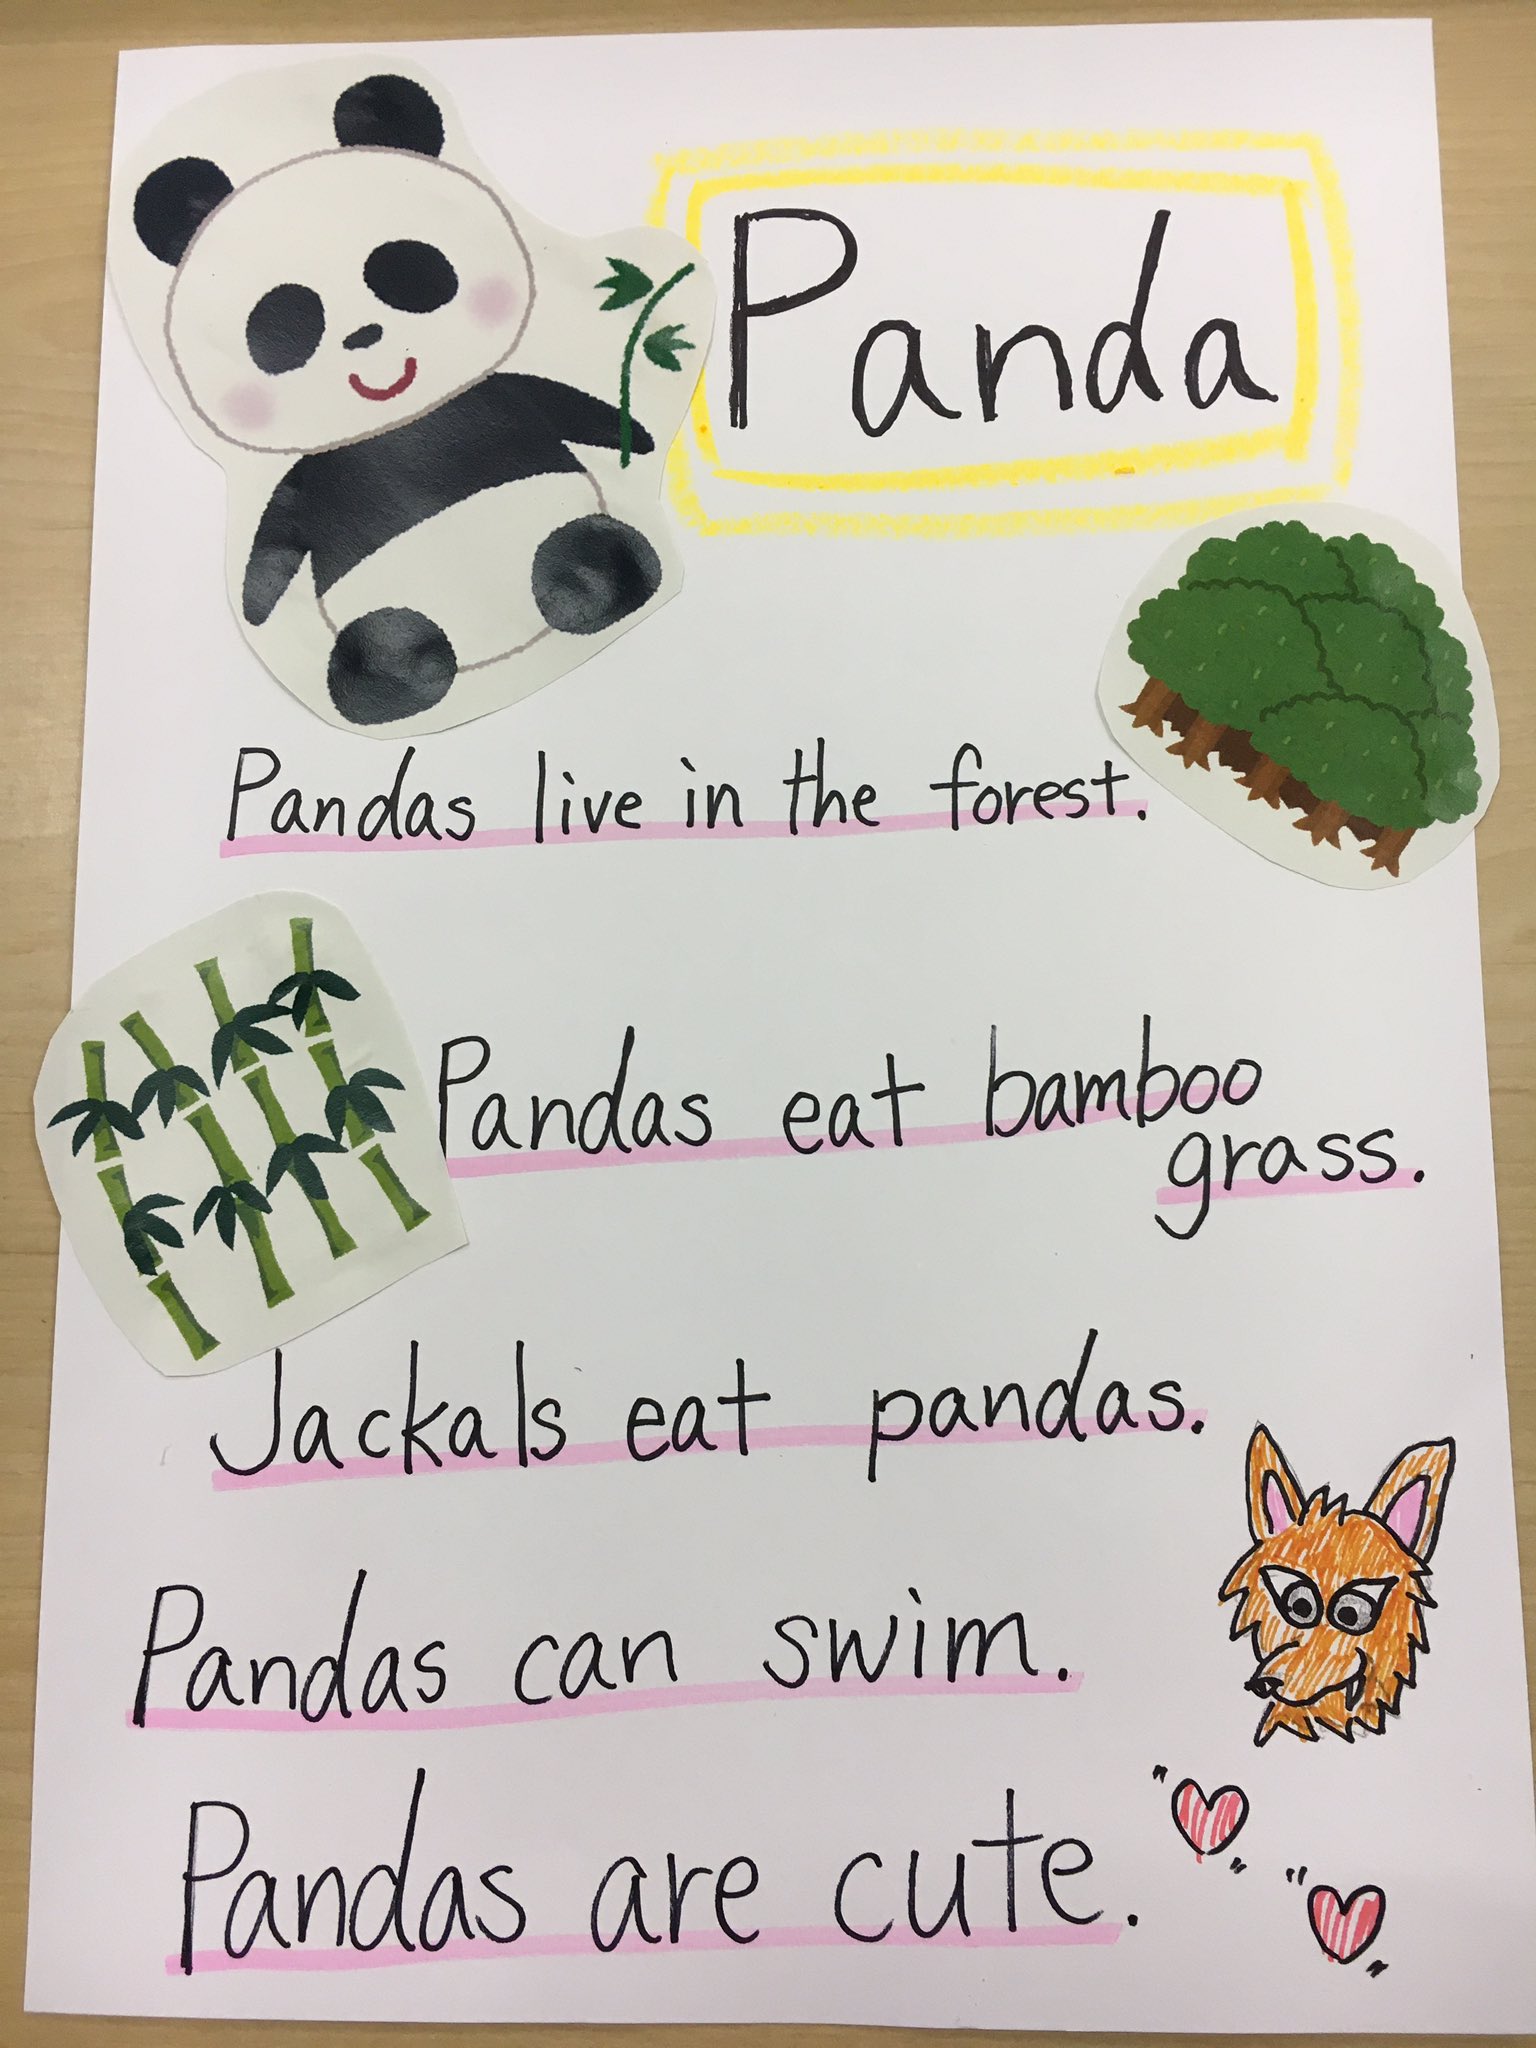 Panda
Pandas live in the forest.
Pandas eat bamboo
grass.
Jackals eat pandas.
Pandas can swim.
Pandas are cute.